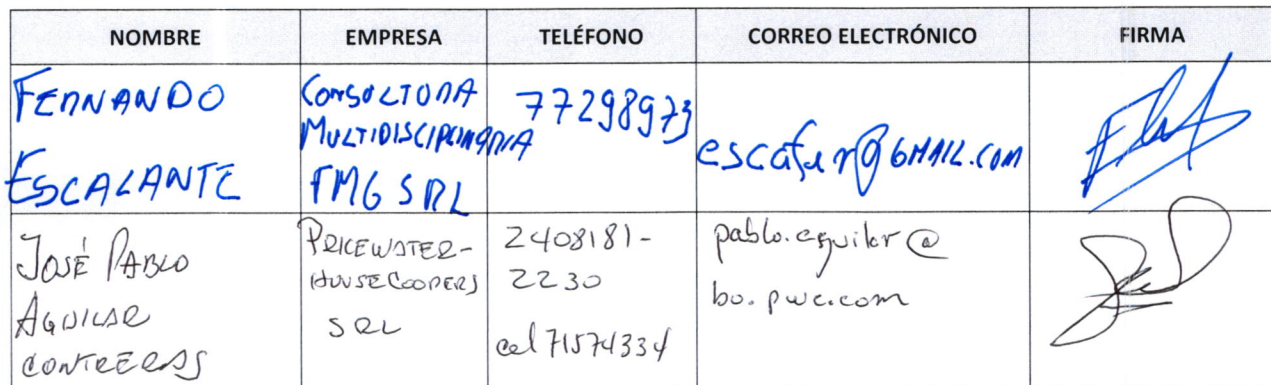 NOMBRE EMPRESA TELÉFONO CORREO ELECTRÓNICO FIRMA
FERNANDO
ESCALANTE
CONSULTORA
MULTIDISCIPLINARIA
FMG SRL
77298973
escafer@GMAIL.COM
JOSÉ PABLO
AGUILAR
CONTRERAS
PRICEWATER-
HOUSECOOPERS
SRL
2408181-
2230
cel 71574334
pablo.aguilar@
bo.pwc.com